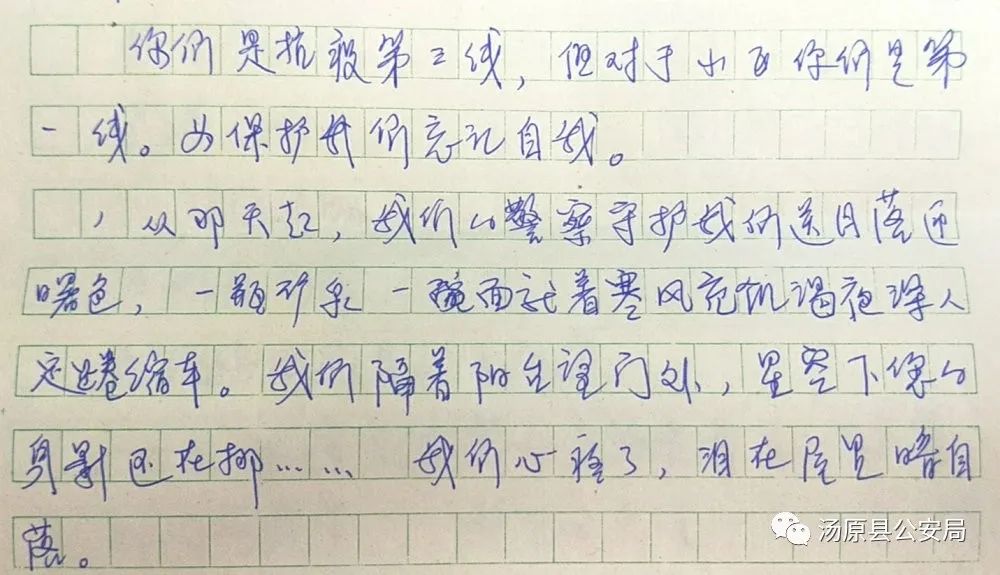 你们是抗疫第二线，但对于小区你们是第
一线。为保护我们忘记自我。
，从那天起，我们的警察守护我们送日落迎
曙色，一瓶矿泉一碗面就着寒风充饥渴夜深人
定卷缩车。我们隔着阳台望门外，星空下您的
身影还在挪……我们心稳了，泪在屋里暗自
落。
汤原县公安局